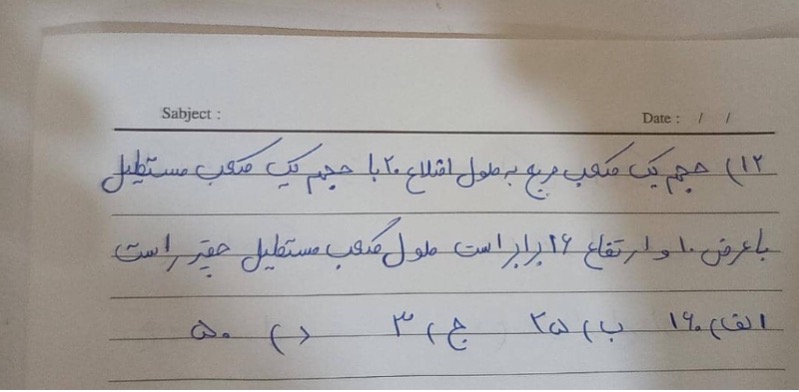 Sabject :
Date : / /
۱۲) حجم یک مکعب مربع به طول اضلاع ۲۰ با حجم یک مکعب مستطیل
با عرض ۱۰ و ارتفاع ۱۶ برابر است طول مکعب مستطیل چقدر است
الف) ۱۶۰ ب) ۲۵ ج) ۳ د) ۵۰